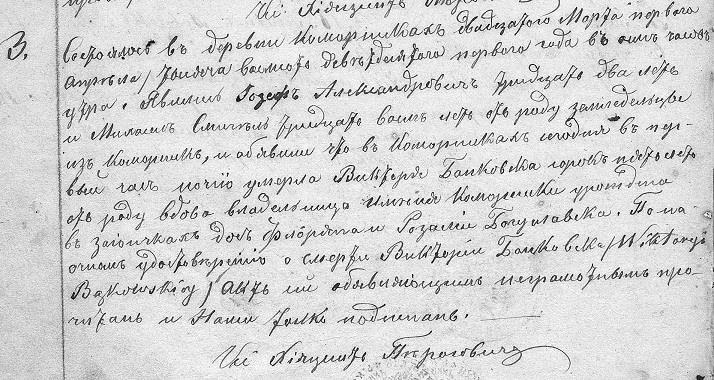 3.
Состоялось въ деревни Коморишкахъ двадцатого Марта первого
Апрѣля / тысяча восмсотъ девятдесятого первого года въ часовъ
утра. Явились Іозефъ Александровичъ тридцать два летъ
и восмъ летъ отъ роду земледельцы
изъ Коморишк, и объявили что въ Коморишкахъ сегодня въ пер-
вый часъ ночію умерла Викторія Банковска сорокъ пять летъ
отъ роду вдова владельница именія Коморишки урождена
въ дочь Флоріана и Розаліи Богуславска. По на-
очномъ удостовѣренію о смерти Викторіи Банковска / Wiktoryi
Bąkowskiej / Актъ сей объявляющимъ неграмотнымъ про-
читанъ и Нами только подписанъ.